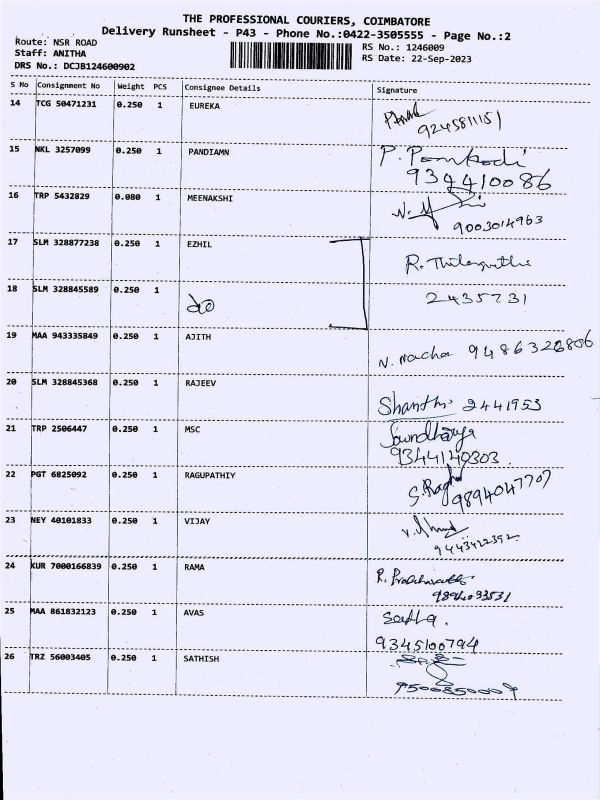 THE PROFESSIONAL COURIERS, COIMBATORE
Delivery Runsheet - P43 - Phone No.:0422-3505555 - Page No.:2
Route: NSR ROAD
RS No.: 1246009
Staff: ANITHA
RS Date: 22-Sep-2023
DRS No.: DCJB124600902
S No Consignment No Weight PCS Consignee Details Signature
14 TCG 50471231 0.250 1 EUREKA
15 NKL 3257099 0.250 1 PANDIAMN P. Ponkodi
934410086
16 TRP 5432829 0.080 1 MEENAKSHI
9003014963
17 SLM 328877238 0.250 1 EZHIL R.
18 SLM 328845589 0.250 1 do 2435731
19 MAA 943335849 0.250 1 AJITH N. 9486326806
20 SLM 328845368 0.250 1 RAJEEV Shanthi 2441953
21 TRP 2506447 0.250 1 MSC Soundharya
9344140303
22 PGT 6825092 0.250 1 RAGUPATHIY 9894047707
23 NEY 40101833 0.250 1 VIJAY
9443422352
24 KUR 7000166839 0.250 1 RAMA R.
9894093531
25 MAA 861832123 0.250 1 AVAS
9345100794
26 TRZ 56003405 0.250 1 SATHISH